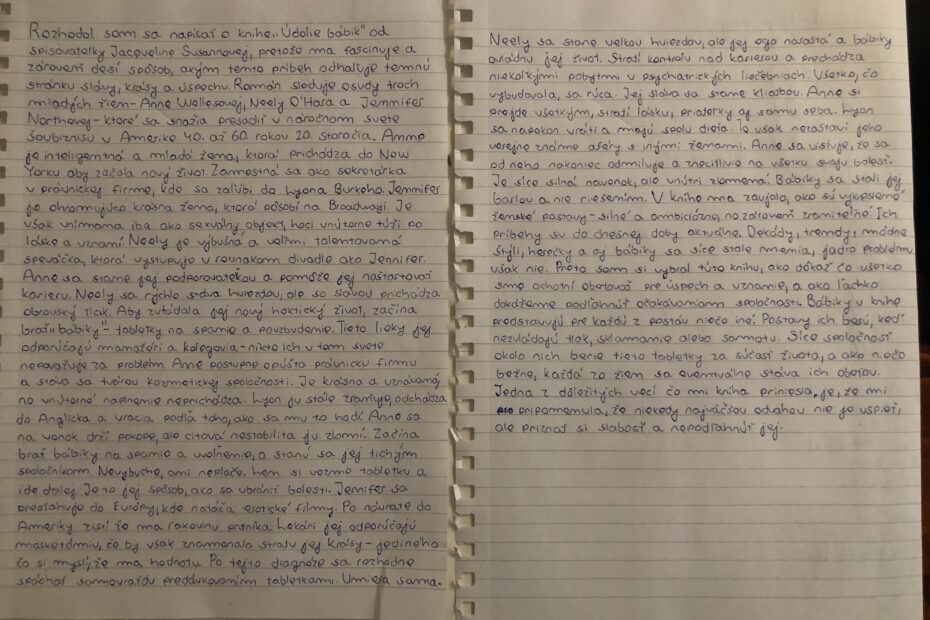 Rozhodol som sa napísať o knihe „Údolie bábik" od
spisovateľky Jacqueline Susannovej, pretože ma fascinuje a
zároveň desí spôsob, akým tento príbeh odhaľuje temnú
stránku slávy, krásy a úspechu. Román sleduje osudy troch
mladých žien – Anne Wellesovej, Neely O'Hara a Jennifer
Northovej – ktoré sa snažia presadiť v náročnom svete
šoubiznisu v Amerike 40. až 60. rokov 20. storočia. Anne
je inteligentná a mladá žena, ktorá prichádza do New
Yorku aby začala nový život. Zamestná sa ako sekretárka
v právnickej firme, kde sa zaľúbi do Lyona Burkeho. Jennifer
je ohromujúco krásna žena, ktorá pôsobí na Broadwayi. Je
však vnímaná iba ako sexuálny objekt, hoci vnútorne túži po
láske a uznaní. Neely je výbušná a veľmi talentovaná
speváčka, ktorá vystupuje v rovnakom divadle ako Jennifer.
Anne sa stane jej podporovateľkou a pomôže jej naštartovať
karieru. Neely sa rýchlo stáva hviezdou, ale so slávou prichádza
obrovský tlak. Aby zvládala jej nový hektický život, začína
brať „bábiky" – tabletky na spanie a povzbudenie. Tieto lieky jej
odporúčajú manažéri a kolegovia – nikto ich v tom svete
nepovažuje za problém. Anne postupne opúšťa právnickú firmu
a stáva sa tvárou kozmetickej spoločnosti. Je krásna a uznávaná,
no vnútorné naplnenie neprichádza. Lyon ju stále zraňuje, odchádza
do Anglicka a vracia podľa toho, ako sa mu to hodí. Anne sa
na vonok drží pokope, ale citová nestabilita ju zlomí. Začína
brať bábiky na spanie a uvoľnenie, a stanú sa jej tichým
spoločníkom. Nevybuchne, ani neplače. Len si vezme tabletku a
ide ďalej. Je to jej spôsob, ako sa ubrániť bolesti. Jennifer sa
presťahuje do Európy, kde natáča erotické filmy. Po návrate do
Ameriky zistí že má rakovinu prsníka. Lekári jej odporúčajú
mastektómiu, čo by však znamenalo stratu jej krásy – jediného
čo si myslí, že má hodnotu. Po tejto diagnóze sa rozhodne
spáchať samovraždu predávkovaním tabletkami. Umiera sama.
Neely sa stane veľkou hviezdou, ale jej ego narastá a bábiky
ovládnu jej život. Stratí kontrolu nad kariérou a prechádza
niekoľkými pobytmi v psychiatrických liečebniach. Všetko, čo
vybudovala, sa rúca. Jej sláva sa stane kliatbou. Anne si
prejde všetkým, stratí lásku, priateľky aj samu seba. Lyon
sa napokon vráti a majú spolu dieťa. To však nezastaví jeho
verejne známe aféry s inými ženami. Anne sa uisťuje, že sa
od neho nakoniec odmiluje a znecitlivie na všetku svoju bolesť.
Je síce silná navonok, ale vnútri zlomená. Bábiky sa stali jej
barlou a nie riešením. V knihe ma zaujalo, ako sú vykreslené
ženské postavy – silné a ambiciózne, no zároveň zraniteľné. Ich
príbehy sú do dnešnej doby aktuálne. Dekády, trendy, módne
štýly, herečky a aj bábiky sa síce stále menia, jadro problému
však nie. Preto som si vybral túto knihu, ako dôkaz čo všetko
sme ochotní obetovať pre úspech a uznanie, a ako ľahko
dokážeme podľahnúť očakávaniam spoločnosti. Bábiky v knihe
predstavujú pre každú z postáv niečo iné. Postavy ich berú, keď
nezvládajú tlak, sklamanie alebo samotu. Síce spoločnosť
okolo nich berie tieto tabletky za súčasť života, a ako niečo
bežné, každá zo žien sa eventuálne stáva ich obeťou.
Jedna z dôležitých vecí čo mi kniha priniesla, je, že mi
pripomenula, že niekedy najväčšou odvahou nie je uspieť,
ale priznať si slabosť a nepodľahnúť jej.